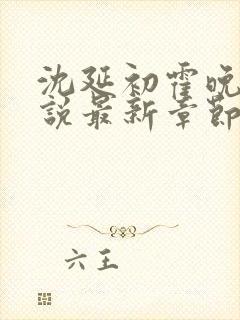 沈延初霍晚
說最新章節
六王